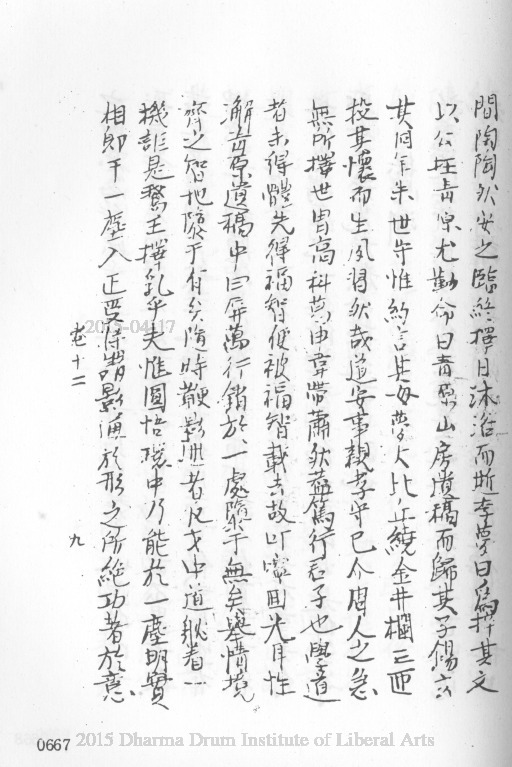 間陶陶然安之臨終擇日沐浴而逝李夢白為梓其文
以公坯青原尤勤命曰青原山房遺稿而歸其子錫
其同年朱世守惟約言其母夢人比丘繞金井欄三匝
投其懷而生夙習然哉道安事親孝守己介周人之急
無所擇世胄高科葛巾韋帶蕭然蓋篤行君子也學道
者未得體先得福智便被福智載去故叮嚀回光月性
澥青原遺稿中曰屏萬行銷於一處隳于無矣舉情境
齊之智地隳于有矣隋時鞭影進者凡才中道纔着一
機誰是鵞王擇乳乎夫惟圓悟環中乃能於一塵明實
相即于一塵入正受傳
譜影滅於形之所絶功著於意
卷十二
九
0667
2015 Dharma Drum Institute of Liberal Arts
2015-04-17